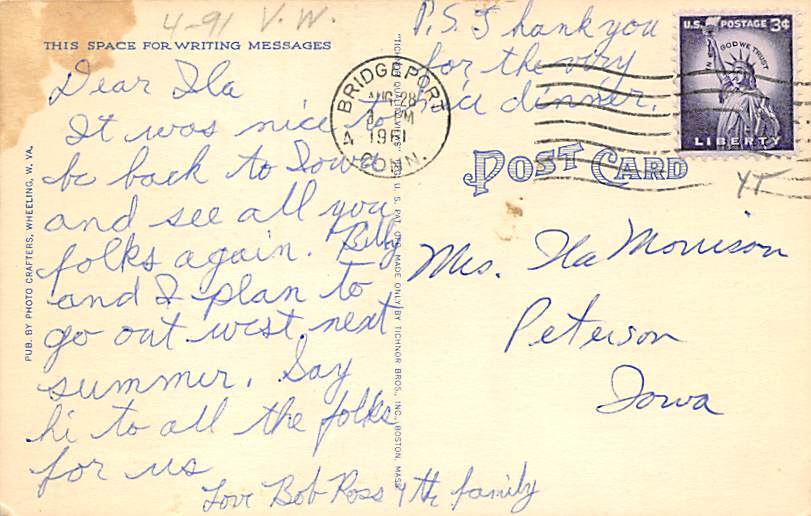 4-91 V.W.
THIS SPACE FOR WRITING MESSAGES
Dear Ila
It was nice to
be back to Iowa
and see all you
folks again. Billy
and I plan to
go out west next
summer. Say
hi to all the folks
for us
Love Bob Ross & the family
P.S. I hank you
for the very
nice dinner.
BRIDGEPORT
AUG 28
PM
1961
4 CONN.
U.S. POSTAGE 3¢
IN GOD WE TRUST
LIBERTY
POST CARD
Mrs. Ila Morrison
Peterson
Iowa
PUB. BY PHOTO CRAFTERS, WHEELING, W. VA.
U. S. PAT. OFF. MADE ONLY BY TICHNOR BROS., INC., BOSTON, MASS.